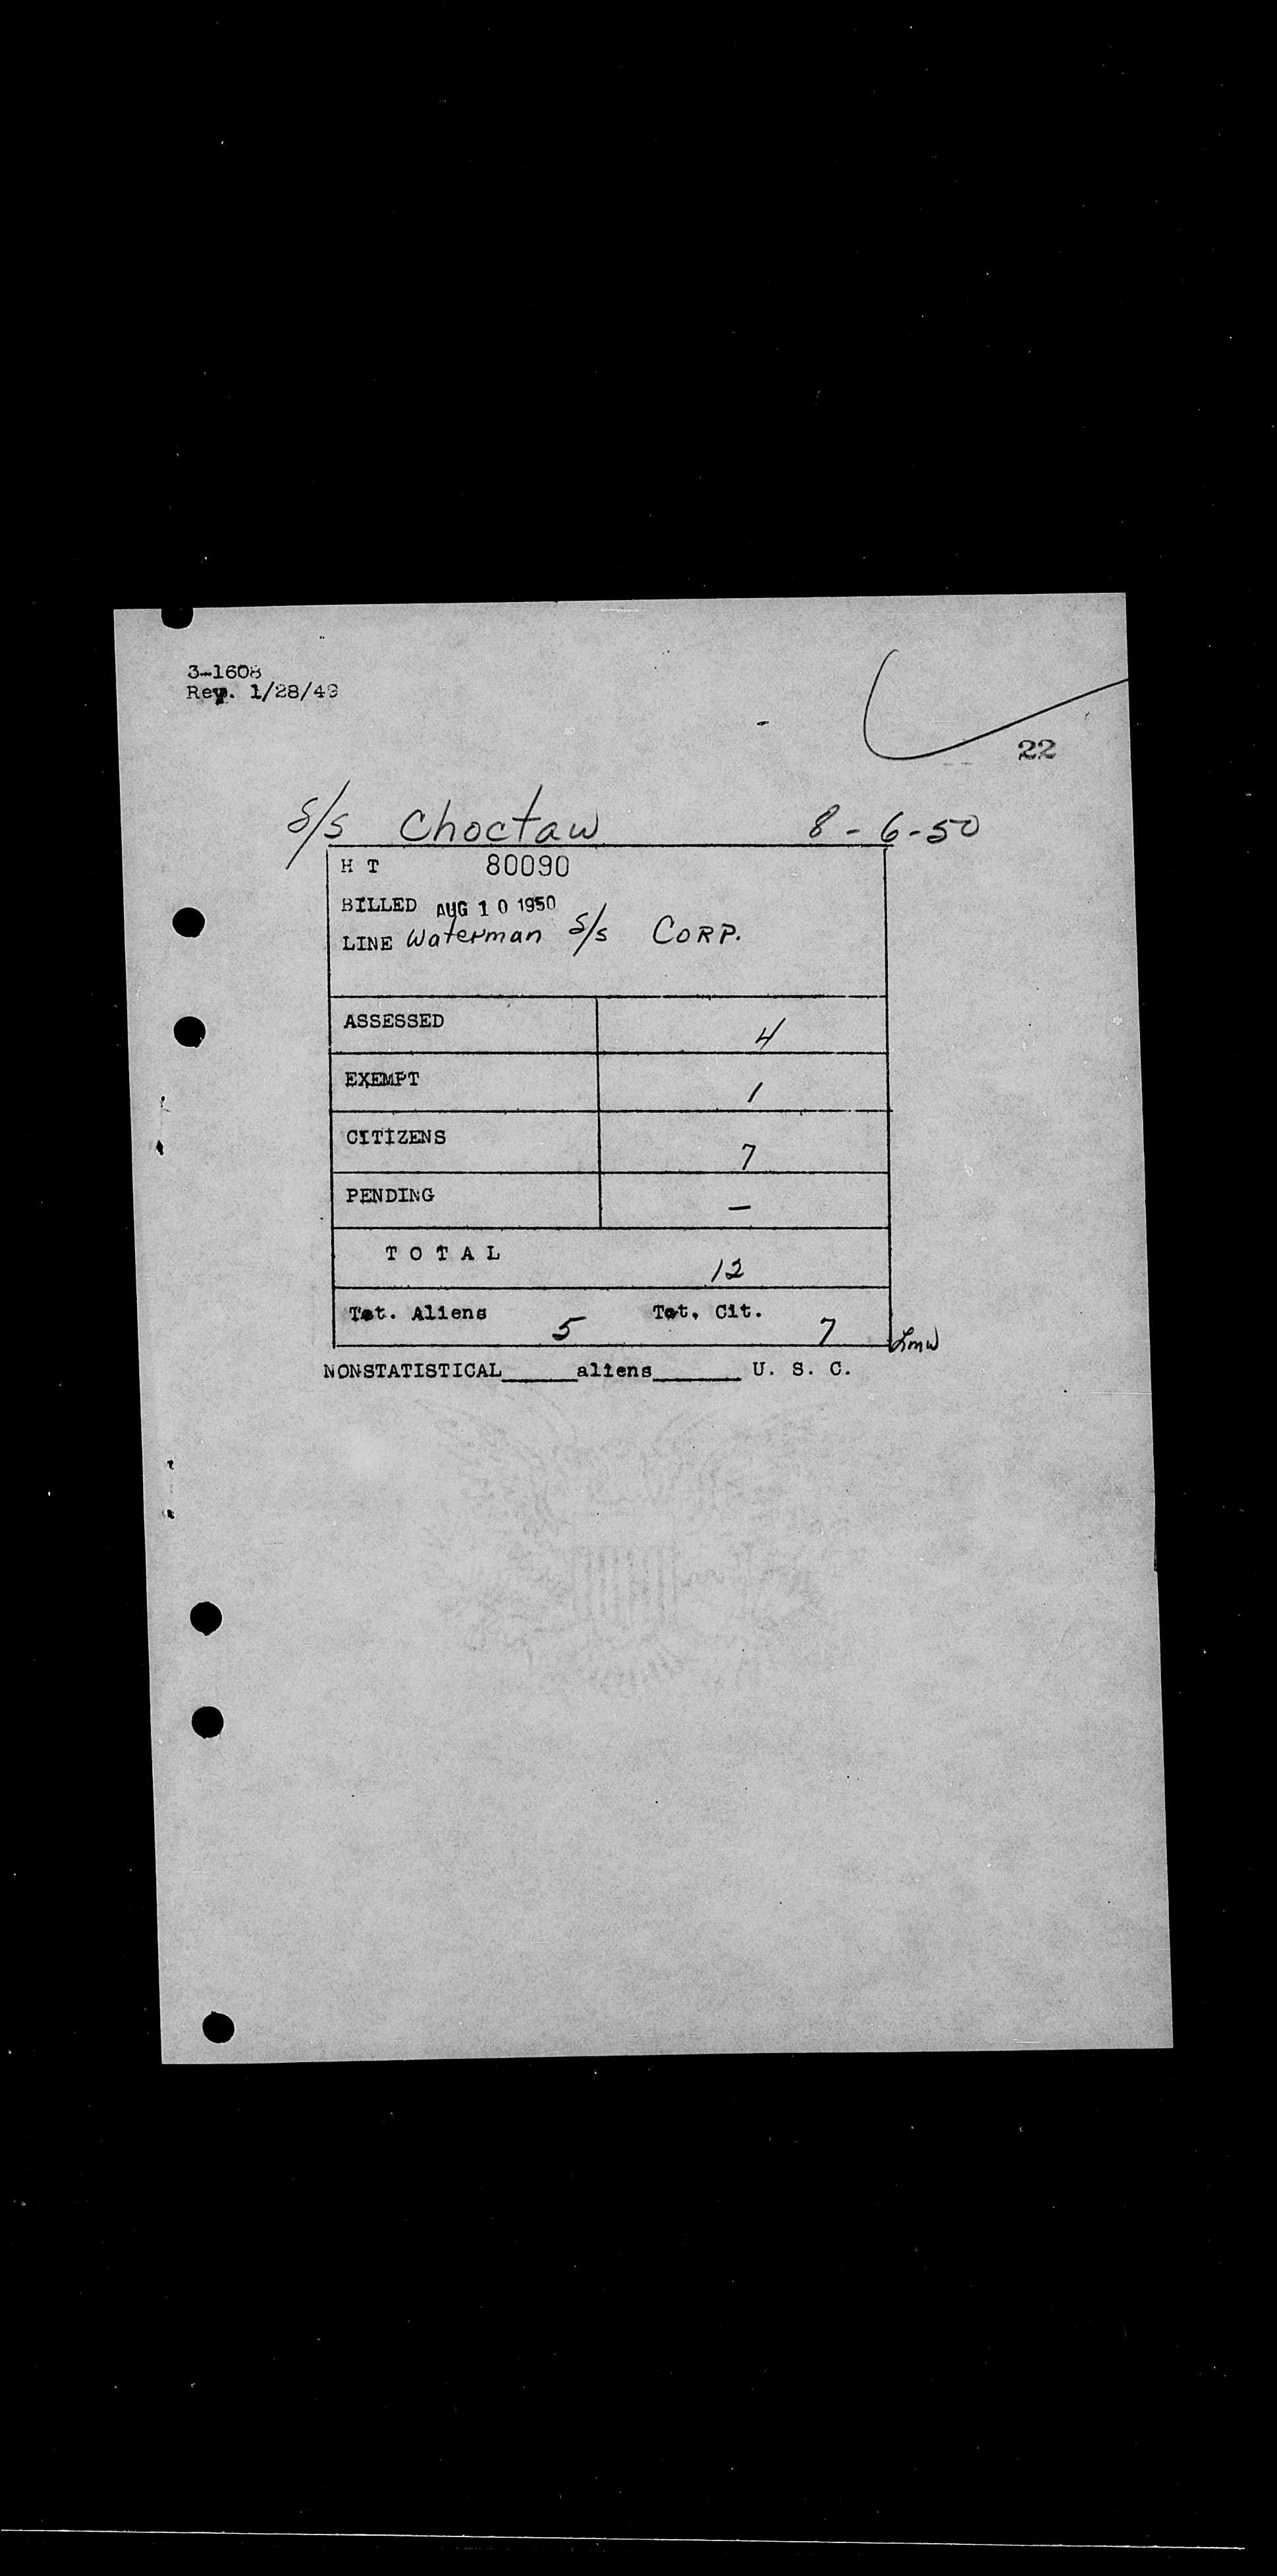 3-1608
Rev. 1/28/49
22
S/S Choctaw 8-6-50
H T 80090
BILLED AUG 10 1950
LINE Waterman S/S CORP.
ASSESSED 4
EXEMPT 1
CITIZENS 7
PENDING —
T O T A L 12
Tot. Aliens 5 Tot. Cit. 7 Lmw
NONSTATISTICAL______aliens_______ U. S. C.